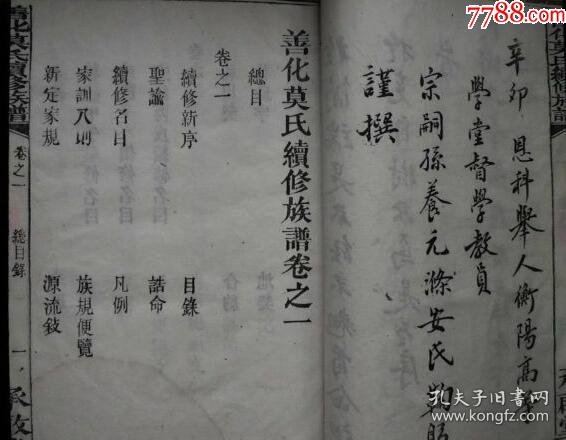 7788.com
善化莫氏續修族譜
辛卯恩科舉人衡陽高等
學堂督學教員
宗嗣孫養元滌安氏
謹撰
善化莫氏續修族譜卷之一
總目
卷之一
續修新序
目錄
聖諭
誥命
續修名目
凡例
家訓八則
族規便覽
新定家規
源流敍
善化莫氏續修族譜
卷之一
總目錄
一
孔夫子旧书网